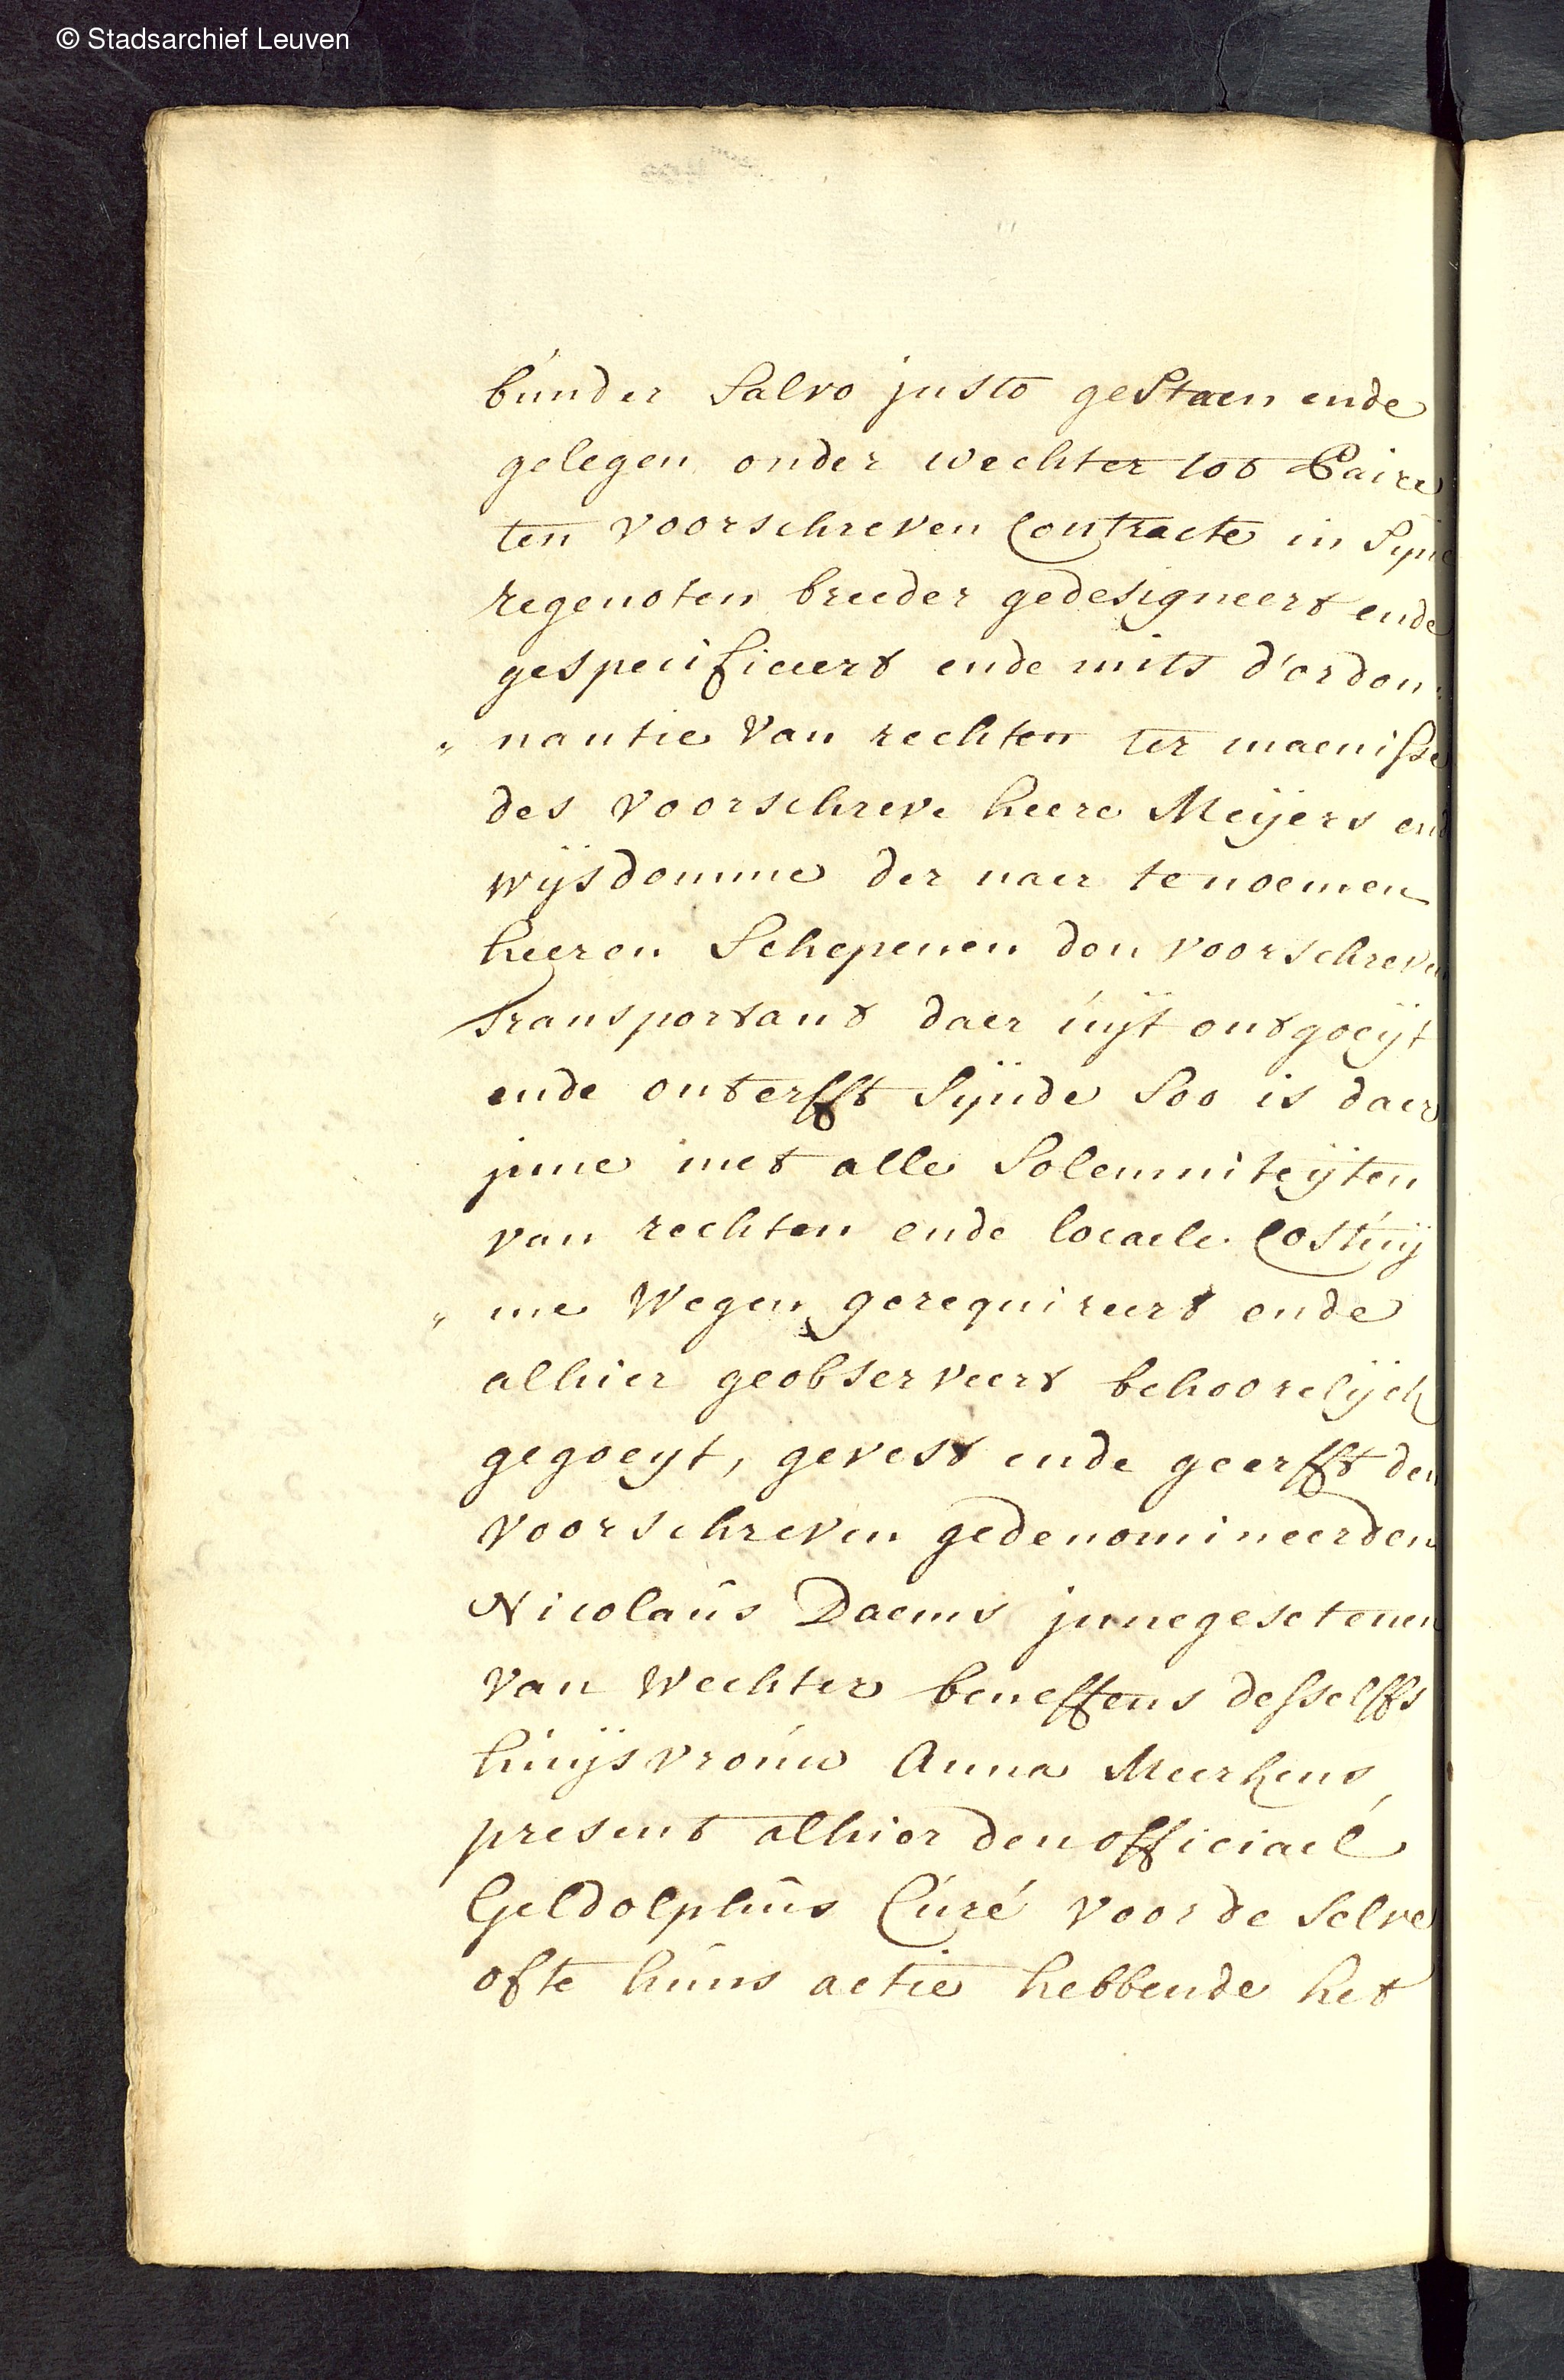 © Stadsarchief Leuven
bunder Salvo justo gestaen ende
gelegen onder wechter tot
ten voorschreven Contracte in Syne
regenoten breeder gedesigneert ende
gespecificeert ende mits d'ordon:
" nantie van rechten ter maenisse
des voorschreve heere Meÿers ende
wÿsdomme der naer te noemen
heeren Schepenen den voorschreven
Transportant daer uÿt ontgoeÿt
ende onterfft Sÿnde Soo is daer
inne met alle Solemniteÿten
van rechten ende locaele Costuÿ
" me Wegen gerequireert ende
alhier geobserveert behoorelÿck
gegoeyt, gevest ende geerfft den
voorschreven gedenomineerden
Nicolaus Daems innegesetenen
van Wechter beneffens desselffs
huÿsvrouw Anna Meerhens,
present alhier den officiael
Geldolphus Curé voor de selve
ofte huns actie hebbende het